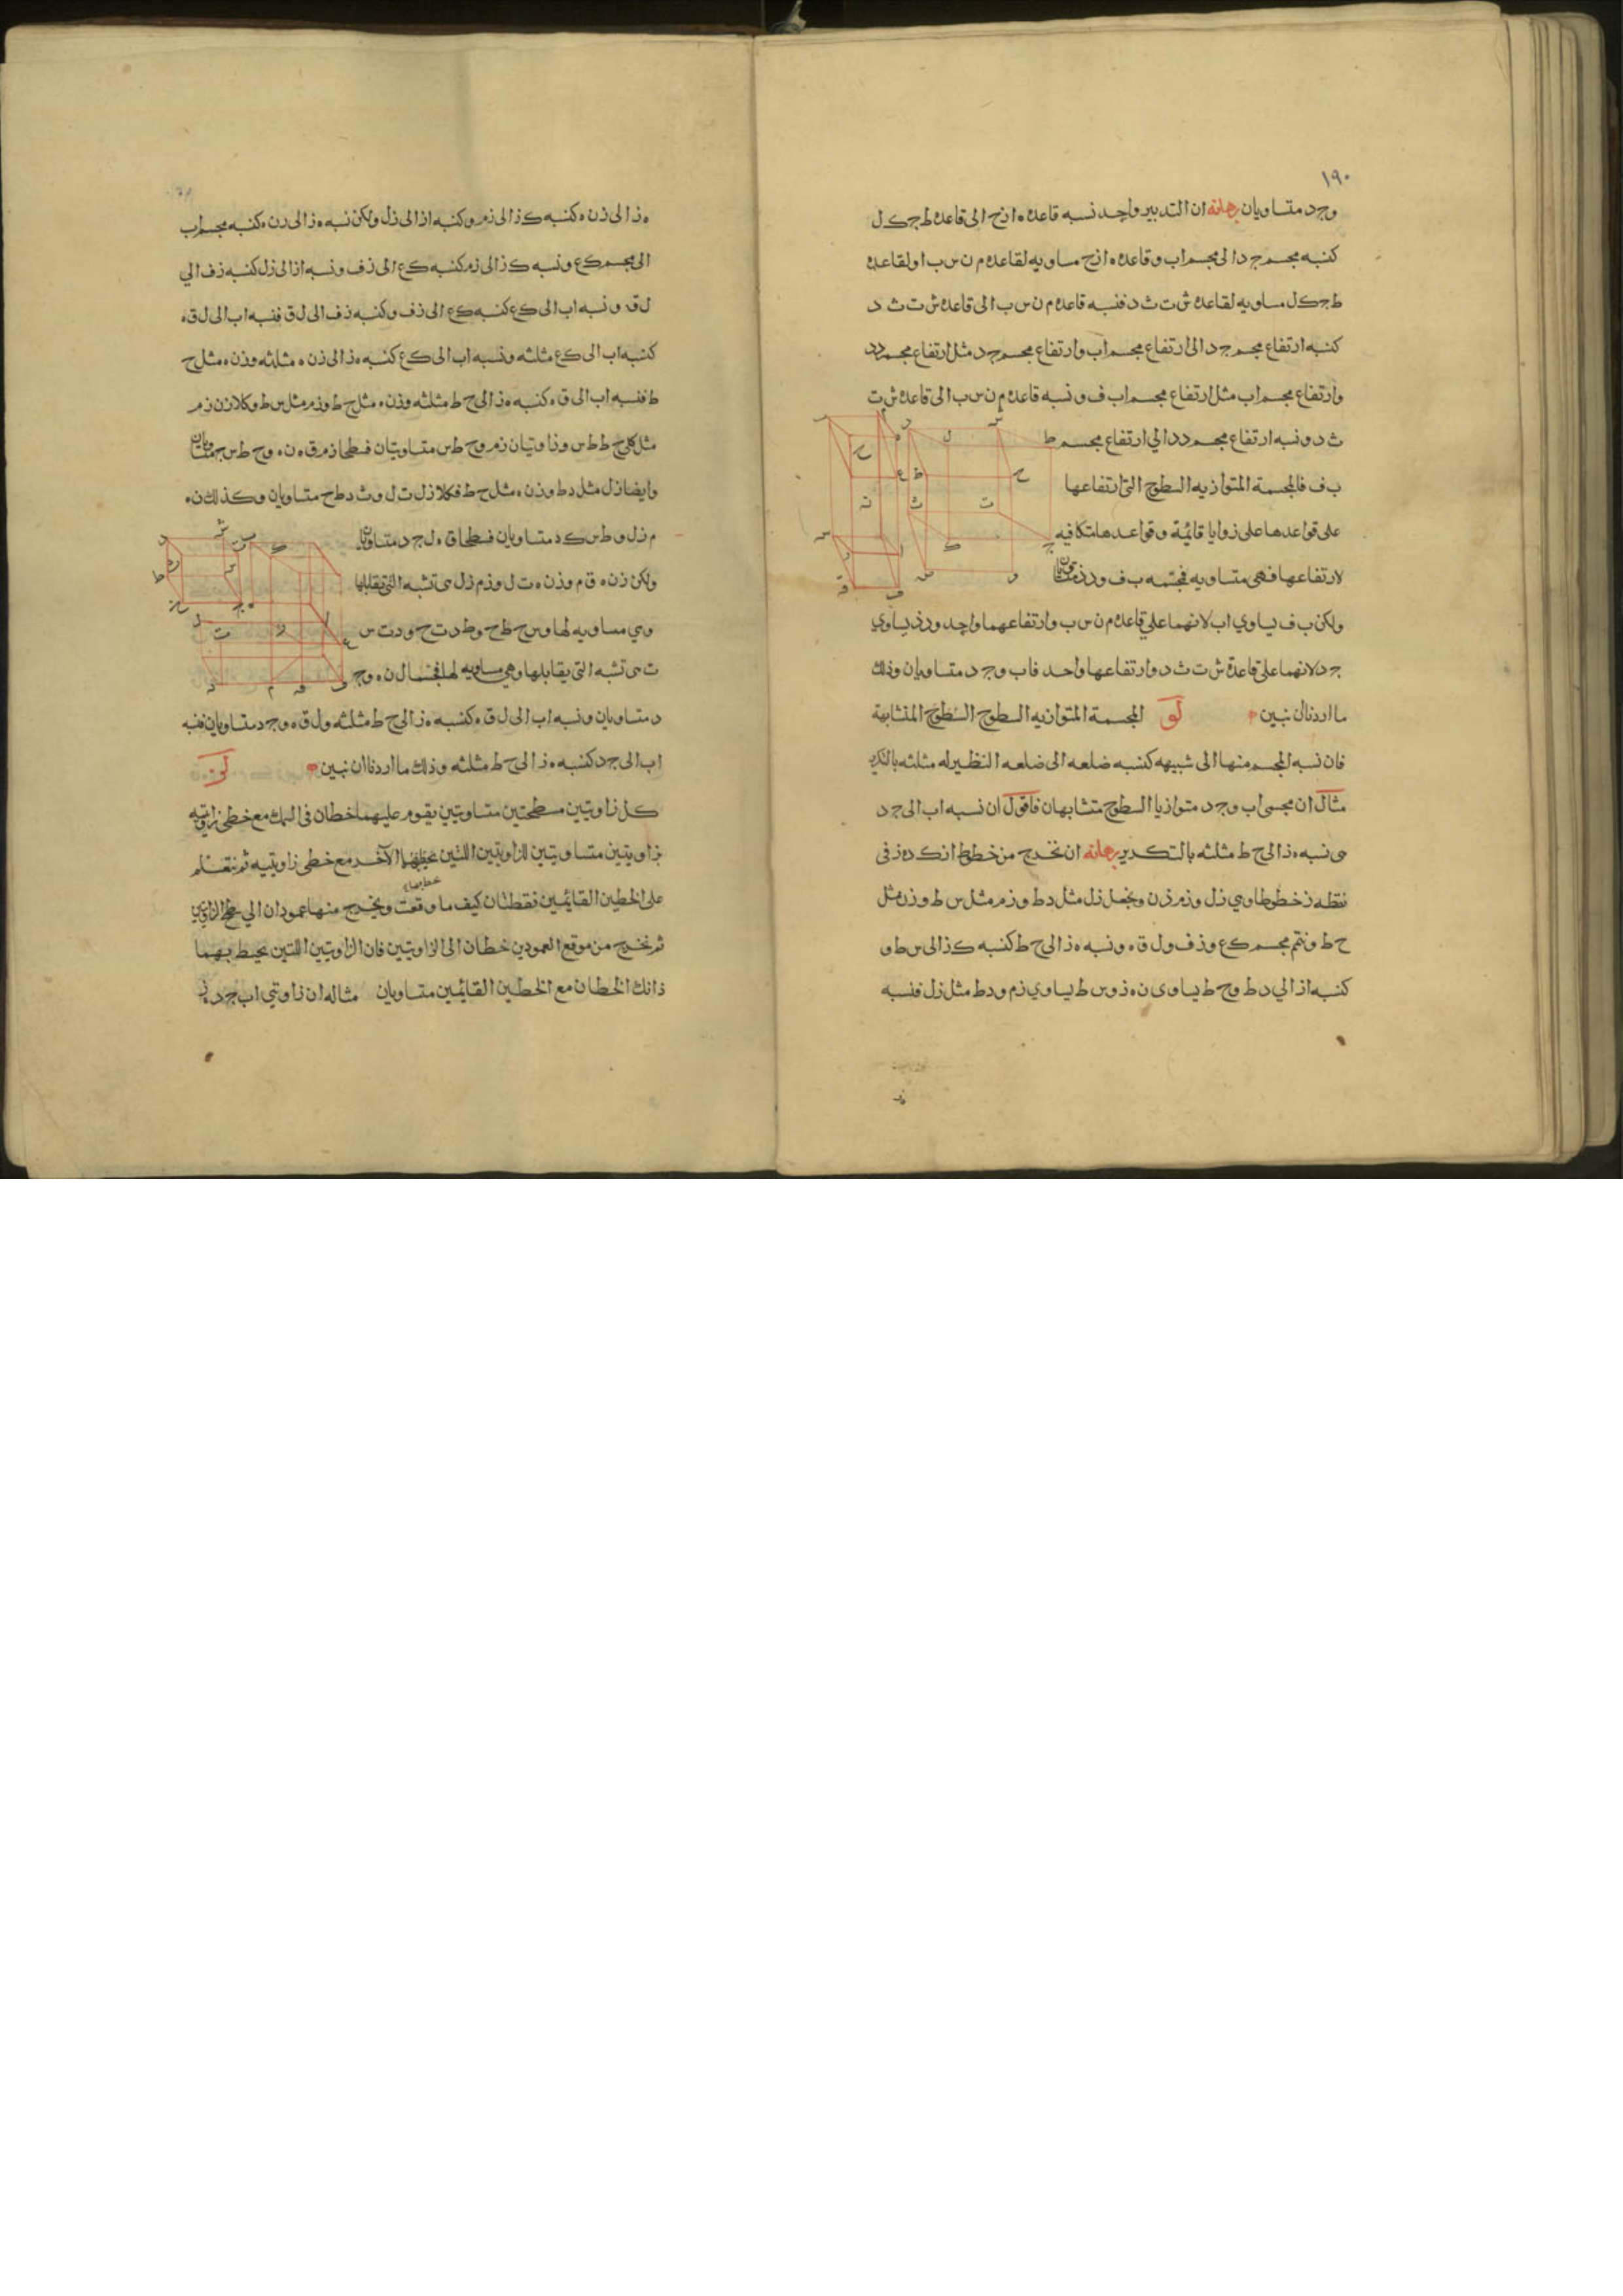 ١٩٠
وجد متساويان برهانه ان التدبير واحد نسبه قاعده ه ا ز ح الى قاعده ط ج ك ل
كنسبه مجسم ج د الى مجسم اب وقاعده ه ا ز ح مساويه لقاعده م ن س ب ا ولقاعده
ط ج ك ل مساويه لقاعده ش ت ث د فنسبه قاعده م ن س ب الى قاعده ش ت ث د
كنسبه ارتفاع مجسم ج د الى ارتفاع مجسم اب وارتفاع مجسم ج د مثل ارتفاع مجسم د ذ
وارتفاع مجسم اب مثل ارتفاع مجسم اب ف ونسبه قاعده م ن س ب الى قاعده ش ت
ث د ونسبه ارتفاع مجسم د د الي ارتفاع مجسم
ب ف فالمجسمة المتوازيه السطوح التي ارتفاعها
على قواعدها على زوايا قائمة وقواعدها متكافيه
لارتفاعها فهى متساويه فمجسمه ب ف و د ذ متساويان
ولكن ب ف يساوي اب لانهما علي قاعده م ن س ب وارتفاعهما واحد و د ذ يساوي
ج د لانهما على قاعدة ش ت ث د وارتفاعها واحد فاب وجد متساويان وذلك
ما اردنا ان نبين لو المجسمة المتوازيه السطوح السطوح المتشابهة
فان نسبه المجسم منها الى شبيهه كنسبه ضلعه الى ضلعه النظير له مثلثه بالتكرير
مثال ان مجسمى اب وجد متوازيا السطوح متشابهان فاقول ان نسبه اب الى ج د
هى نسبه ه ز الى ح ط مثلثه بالتكرير برهانه ان نخرج من خطوط ا ز ك ز ه ز فى
نقطه ز خطوطا وهي زل وزم وزن ونجعل زل مثل د ط وزم مثل س ط وزن مثل
ح ط ونتم مجسم ك ع وزف ول ق ه ونسبه ه ز الى ح ط كنسبه ك ز الى س ط و
كنسبه ا ز الي د ط وح ط يساوى ن ه ز وس ط يساوي زم ود ط مثل زل فنسبه
ه ز الى زن ه كنسبه ك ز الى زم وكنسبه ا ز الى زل ولكن نسبه ه ز الى زن ه كنسبه مجسم اب
الى مجسم ك ع ونسبه ك ز الى زم كنسبه ك ع الى زف ونسبه ا ز الى زل كنسبه زف الي
ل ق ه ونسبه اب الى ك ع كنسبه ك ع الى زف وكنسبه زف الى ل ق فنسبه اب الى ل ق ه
كنسبه اب الى ك ع مثلثه ونسبه اب الى ك ع كنسبه ه ز الى زن ه مثلثه وزن ه مثل ح
ط فنسبه اب الى ق ه كنسبه ه ز الى ح ط مثلثه وزن ه مثل ح ط وزم مثل س ط وكلا زن زم
مثل كلى ح ط ط س وزاويتان زم وح ط س متساويتان فسطحا زم ق ه ن ه وح ط س ج متساويان
وايضا زل مثل د ط وزن ه مثل ح ط فكلا زل ت ل وث د ط ح متساويان وكذلك ن ه
م زل و ط س ك د متساويان فسطحا ق ه ل ج د متساويان
ولكن زن ه ق م وزن ه ت ل وزم زل هى تشبه التي تقابلها
وهي مساويه لها وس ح ط ح و ط د ت ح و د ت س
ث هى تشبه التى يقابلها وهي مساويه لها فمجسما ل ن ه وج
د متساويان ونسبه اب الى ل ق ه كنسبه ه ز الى ح ط مثلثه ول ق ه وج د متساويان فنسبه
اب الى ج د كنسبه ه ز الى ح ط مثلثه وذلك ما اردنا ان نبين لز
كل زاويتين مسطحتين متساويتين يقوم عليهما خطان فى السمك مع خطى زاويتيه
بزاويتين متساويتين للزاويتين اللتين يحيط بهما الآخر مع خطى زاويتيه ثم نتعلم
على الخطين القايمين نقطتان كيف ما وقعت ويخرج منها عمودان الي سطحي الزاويتين
ثم نخرج من موقع العمودين خطان الى الزاويتين فان الزاويتين اللتين يحيط بهما
ذانك الخطان مع الخطين القايمين متساويان مثاله ان زاوتي اب ج د ه ز